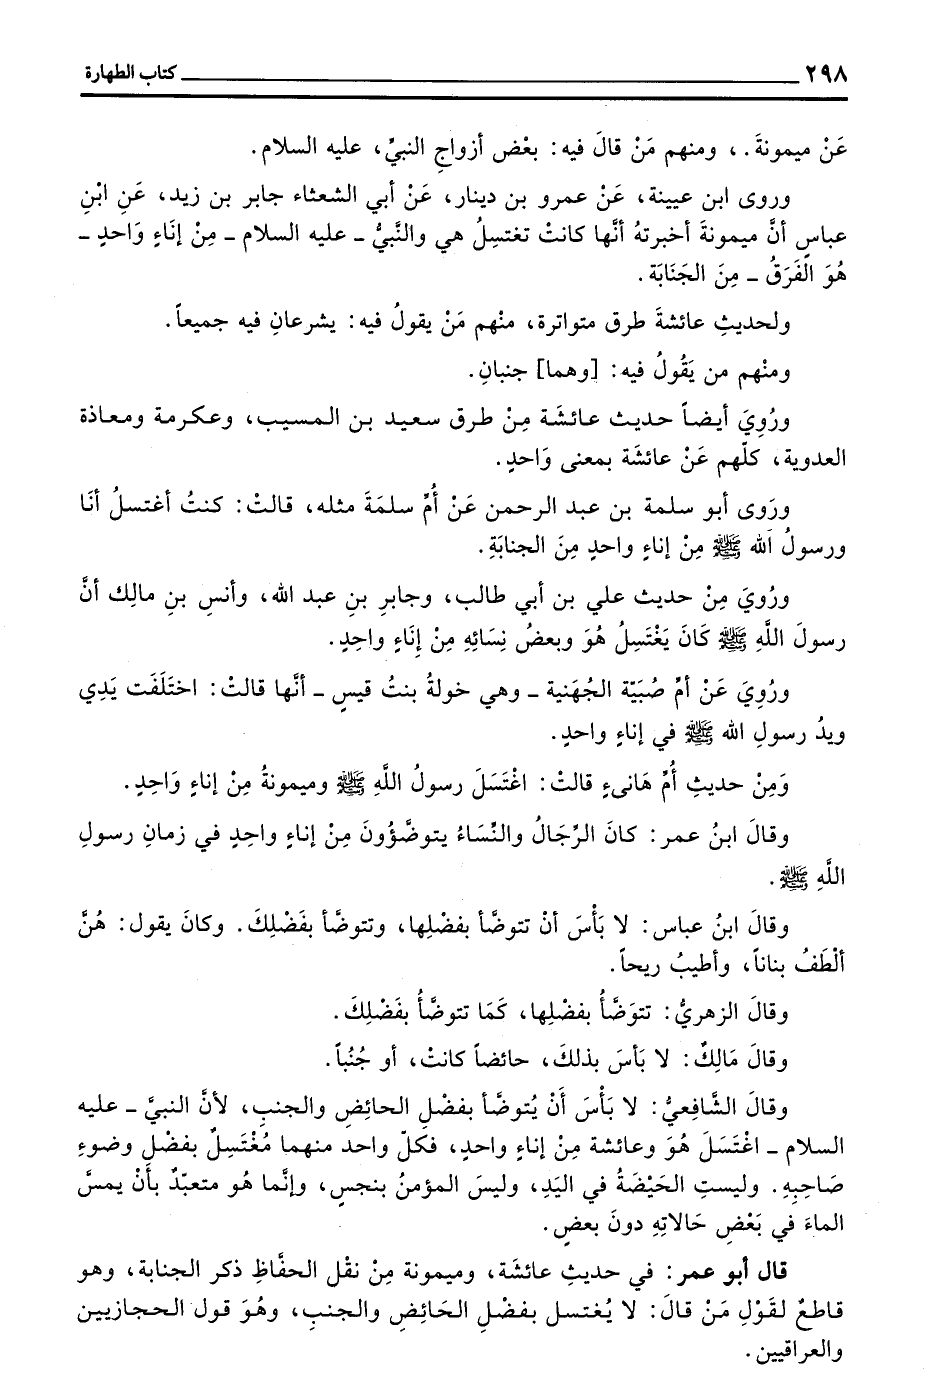 ٢٩٨ كتاب الطهارة
عَنْ ميمونةَ .، ومنهم مَنْ قالَ فيه: بعْض أزواجِ النبيِّ، عليه السلام.
وروى ابن عيينة، عَنْ عمرو بن دينار، عَنْ أبي الشعثاء جابر بن زيد، عَنِ ابْنِ
عباسٍ أنَّ ميمونةَ أخبرتهُ أنَّها كانتْ تغتسِلُ هي والنَّبيُّ - عليه السلام - مِنْ إنَاءٍ وَاحدٍ -
هُوَ الفَرَقُ - مِنَ الجَنَابَة.
ولحديثِ عائشةَ طرق متواترة، منْهم مَنْ يقولُ فيه: يشرعانِ فيه جميعاً.
ومنْهم من يَقُولُ فيه: [وهما] جنبانِ.
ورُوِيَ أيضاً حديث عائشَة مِنْ طرق سعيد بن المسيب، وعكرمة ومعاذة
العدوية، كلّهم عَنْ عائشَة بمعنى وَاحدٍ.
ورَوى أبو سلمة بن عبد الرحمن عَنْ أُمِّ سلمَةَ مثله، قالتْ: كنتُ أغتسلُ أنَا
ورسولُ الله ﷺ مِنْ إناءٍ واحدٍ مِنَ الجنابَةِ.
ورُويَ مِنْ حديث علي بن أبي طالب، وجابرِ بنِ عبد الله، وأنسِ بنِ مالِك أنَّ
رسولَ اللَّهِ ﷺ كَانَ يَغْتَسِلُ هُوَ وبعضُ نِسَائِهِ مِنْ إِنَاءٍ واحِدٍ.
ورُوِيَ عَنْ أمِّ صُبَيّة الجُهَنية - وهي خولةُ بنتُ قيسٍ - أنَّها قالتْ: اختَلَفَت يَدِي
ويدُ رسولِ الله ﷺ في إناءٍ واحدٍ.
وَمِنْ حديثِ أُمِّ هَانىءٍ قالتْ: اغْتَسَلَ رسولُ اللَّهِ ﷺ وميمونةُ مِنْ إناءٍ وَاحِدٍ.
وقالَ ابنُ عمر: كانَ الرِّجَالُ والنِّسَاءُ يتوضَّؤُونَ مِنْ إناءٍ واحِدٍ في زمانِ رسولِ
اللَّهِ ﷺ.
وقالَ ابنُ عباس: لا بَأْسَ أنْ تتوضَّأ بفضْلِها، وتتوضَّأ بفَضْلِكَ. وكانَ يقول: هُنَّ
ألْطَفُ بناناً، وأطيبُ ريحاً.
وقالَ الزهريُّ: تتوَضَّأُ بفضْلِها، كَمَا تتوضَّأُ بفَضْلِكَ.
وقالَ مَالِكٌ: لا بَأسَ بذلكَ، حائضاً كانتْ، أو جُنُباً.
وقالَ الشَّافعيُّ: لا بَأْسَ أَنْ يُتوضَّأ بفضْلِ الحائضِ والجنبِ، لأنَّ النبيَّ - عليه
السلام - اغْتَسَلَ هُوَ وعائشة مِنْ إناءٍ واحدٍ، فكلّ واحد منهما مُغْتَسِلٌ بفضْلِ وضوءِ
صَاحبِهِ. وليستِ الحَيْضَةُ في اليَدِ، وليسَ المؤمنُ بنجسٍ، وإنَّما هو متعبّدٌ بأَنْ يمسَّ
الماءَ في بَعْضِ حَالاتِهِ دونَ بعضٍ.
قال أبو عمر: في حديثِ عائشَة، وميمونة مِنْ نقْل الحفَّاظِ ذكر الجنابة، وهو
قاطعٌ لقَوْلِ مَنْ قالَ: لا يُغتسل بفضْلِ الحَائِضِ والجنبِ، وهُوَ قول الحجازيين
والعراقيين.